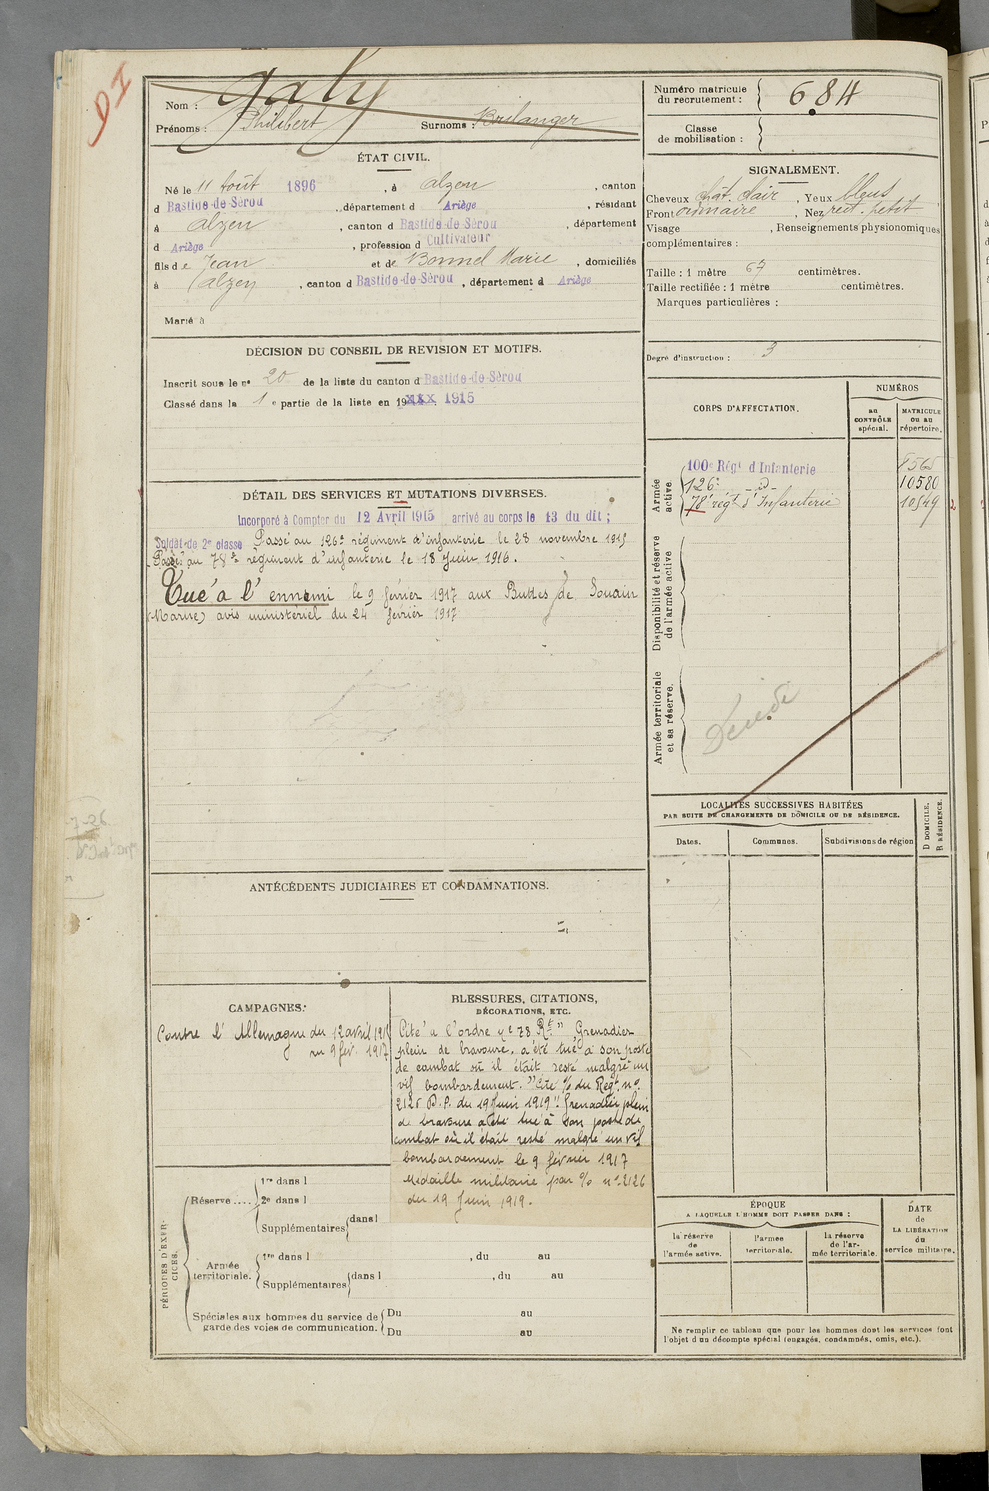 DI
Nom : Galy
Prénoms : Philibert Surnoms : Boulanger
ÉTAT CIVIL.
Né le 11 Août 1896, à Alzen, canton
d Bastide-de-Sérou, département d Ariège, résidant
à Alzen, canton d Bastide-de-Sérou, département
d Ariège, profession d Cultivateur
fils de Jean et de Bonnel Marie, domiciliés
à Alzen, canton d Bastide-de-Sérou, département d Ariège
Marié à
DÉCISION DU CONSEIL DE REVISION ET MOTIFS.
Inscrit sous le n° 20 de la liste du canton d Bastide-de-Sérou
Classé dans la 1e partie de la liste en 19xxx 1915
DÉTAIL DES SERVICES ET MUTATIONS DIVERSES.
Incorporé à Compter du 12 Avril 1915 arrivé au corps le 13 du dit ;
Soldat de 2e classe Passé au 126e régiment d'infanterie le 28 novembre 1915
Passé au 78e régiment d'infanterie le 18 Juin 1916.
Tué à l'ennemi le 9 février 1917 aux Buttes de Souain
(Marne) avis ministériel du 24 février 1917
ANTÉCÉDENTS JUDICIAIRES ET CONDAMNATIONS.
CAMPAGNES.
Contre l'Allemagne du 12 avril 1915
au 9 fév. 1917
BLESSURES, CITATIONS,
DÉCORATIONS, ETC.
Cité à l'ordre du 78 Rt " Grenadier
plein de bravoure, a été tué à son poste
de combat où il était resté malgré un
vif bombardement." Cité % du Régt n°
2126 D.P. du 19 Juin 1919 " Grenadier plein
de bravoure a été tué à son poste de
combat où il était resté malgré un vif
bombardement le 9 février 1917
Médaille militaire par % n° 2126
du 19 Juin 1919.
PÉRIODES D'EXERCICES.
Réserve....
1re dans l
2e dans l
Supplémentaires dans l
Armée territoriale.
1re dans l , du au
Supplémentaires dans l , du au
Spéciales aux hommes du service de garde des voies de communication.
Du au
Du au
Numéro matricule
du recrutement : 684
Classe
de mobilisation :
SIGNALEMENT.
Cheveux chât. clair, Yeux bleus
Front ordinaire, Nez rect. petit
Visage , Renseignements physionomiques
complémentaires :
Taille : 1 mètre 67 centimètres.
Taille rectifiée : 1 mètre centimètres.
Marques particulières :
Degré d'instruction : 3
CORPS D'AFFECTATION.
NUMÉROS
au CONTRÔLE spécial.
MATRICULE OU AU répertoire.
Armée active
100e Régt d'Infanterie 8565
126e -d- 10580
78e régt d'Infanterie 10549
Disponibilité et réserve de l'armée active
Armée territoriale et sa réserve.
Décédé
LOCALITÉS SUCCESSIVES HABITÉES
PAR SUITE DE CHANGEMENTS DE DOMICILE OU DE RÉSIDENCE.
D DOMICILE.
R RÉSIDENCE.
Dates.
Communes.
Subdivisions de région
ÉPOQUE
A LAQUELLE L'HOMME DOIT PASSER DANS :
la réserve de l'armée active.
l'armée territoriale.
la réserve de l'armée territoriale.
DATE
de
LA LIBÉRATION
du
service militaire.
Ne remplir ce tableau que pour les hommes dont les services font
l'objet d'un décompte spécial (engagés, condamnés, omis, etc.).